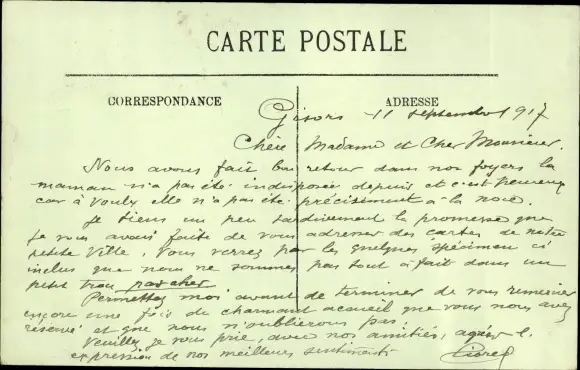 CARTE POSTALE
CORRESPONDANCE
ADRESSE
Gisors 11 septembre 1917
Chère Madame et Cher Monsieur.
Nous avons fait bon retour dans nos foyers la
maman n'a pas été indisposée depuis et c'est heureux
car à Vouly elle n'a pas été précisément à la noce.
Je tiens un peu tardivement la promesse que
je vous avais faite de vous adresser des cartes de notre
petite ville. Vous verrez par les quelques spécimen ci
inclus que nous ne sommes pas tout à fait dans un
petit trou pas cher
Permettez moi avant de terminer de vous remercier
encore une fois du charmant accueil que vous nous avez
réservé et que nous n'oublierons pas
Veuillez je vous prie, avec nos amitiés, agréer l'
expression de nos meilleurs sentiments